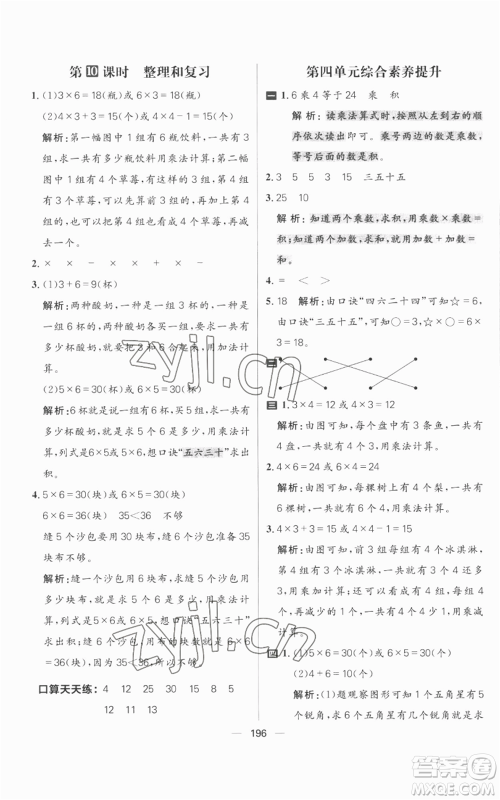 第10课时 整理和复习
1. (1)3×6=18(瓶)或6×3=18(瓶)
(2)4×3+3=15(个)或4×4-1=15(个)
解析:第一幅图中1组有6瓶饮料,一共有3
组,求一共有多少瓶饮料用乘法计算;第二幅
图中1组有4个草莓,有这样的3组,还多3
个草莓,可以先算前3组有多少个,再加上多
的3个;也可以先算有4组,每组有4个,再
减去一个。
2. × - × + × -
3. (1)3+6=9(杯)
解析:两种酸奶,一种一组3杯,另一种一组6
杯,两种酸奶,每种酸奶都买一组,求一共有
多少杯酸奶,就要把两种酸奶的杯数合起来,
所以用加法计算。
(2)5×6=30(杯)或6×5=30(杯)
解析:6杯就是一组有6瓶,买5组,求一共有
多少杯酸奶,就是求5个6是多少,用乘法计
算,列式是6×5=或5×6=,想口诀“五六三十”求
出积。
4. 5×6=30(块)或6×5=30(块)
6×6=36(块) 35<36 不够
缝5个沙包要用30块布,缝6个沙包35块
布不够。
解析:缝一个沙包用6块布,缝5个沙包用多
少块布,就是求5个6是多少,用乘法计算,
列式是5×6=或6×5=,想口诀“五六三十”
求出积;缝6个沙包用多少块布,列式是6×6
=36(块),因为35<36,所以不够
口算天天练: 4 12 15 15 8 5
12 13 13
第四单元综合素养提升
一 1. 6乘4等于24 乘 积
解析:读乘法算式时,按照从左到右的顺
序依次读出即可。乘号两边的数是乘数,
等号后面的数是积。
2. 3 5 5 3 15 三五十五
3. 25 10
解析:知道两个乘数,求积,用乘数×乘数=
积;知道两个加数,求和,就用加数+加数
=和。
4. = < >
5. 18 解析:由口诀“四六二十四”可知☆=6,
由口诀“三五十五”,可知○=3,☆×○=6×
3=18。
二
三 1. 3×4=12或4×3=12
解析:由图可知,每个盘中有3个,有这样的
4盘,求一共有多少个,用乘法计算。
2. 4×6=24或6×4=24
解析:由图可知,每棵树上有4个,有6棵
树,求一共有多少个,用乘法计算。
3. 4×3+1=13或4×4-3=13
解析:由图可知,前3组每组有4个冰淇淋,
第4组有1个冰淇淋,求一共有多少个,用
乘加计算;还可以看成有4组,每组有4个,
再减少的3个,求一共有多少个,用乘减
计算。
四 1. (1)5×6=30(个)或6×5=30(个)
(2)4+6=10(个)
解析:(1)题观察图形可知1个五角星有5
个锐角,求6个五角星有多少个锐角,就求
196
zyjl.cn